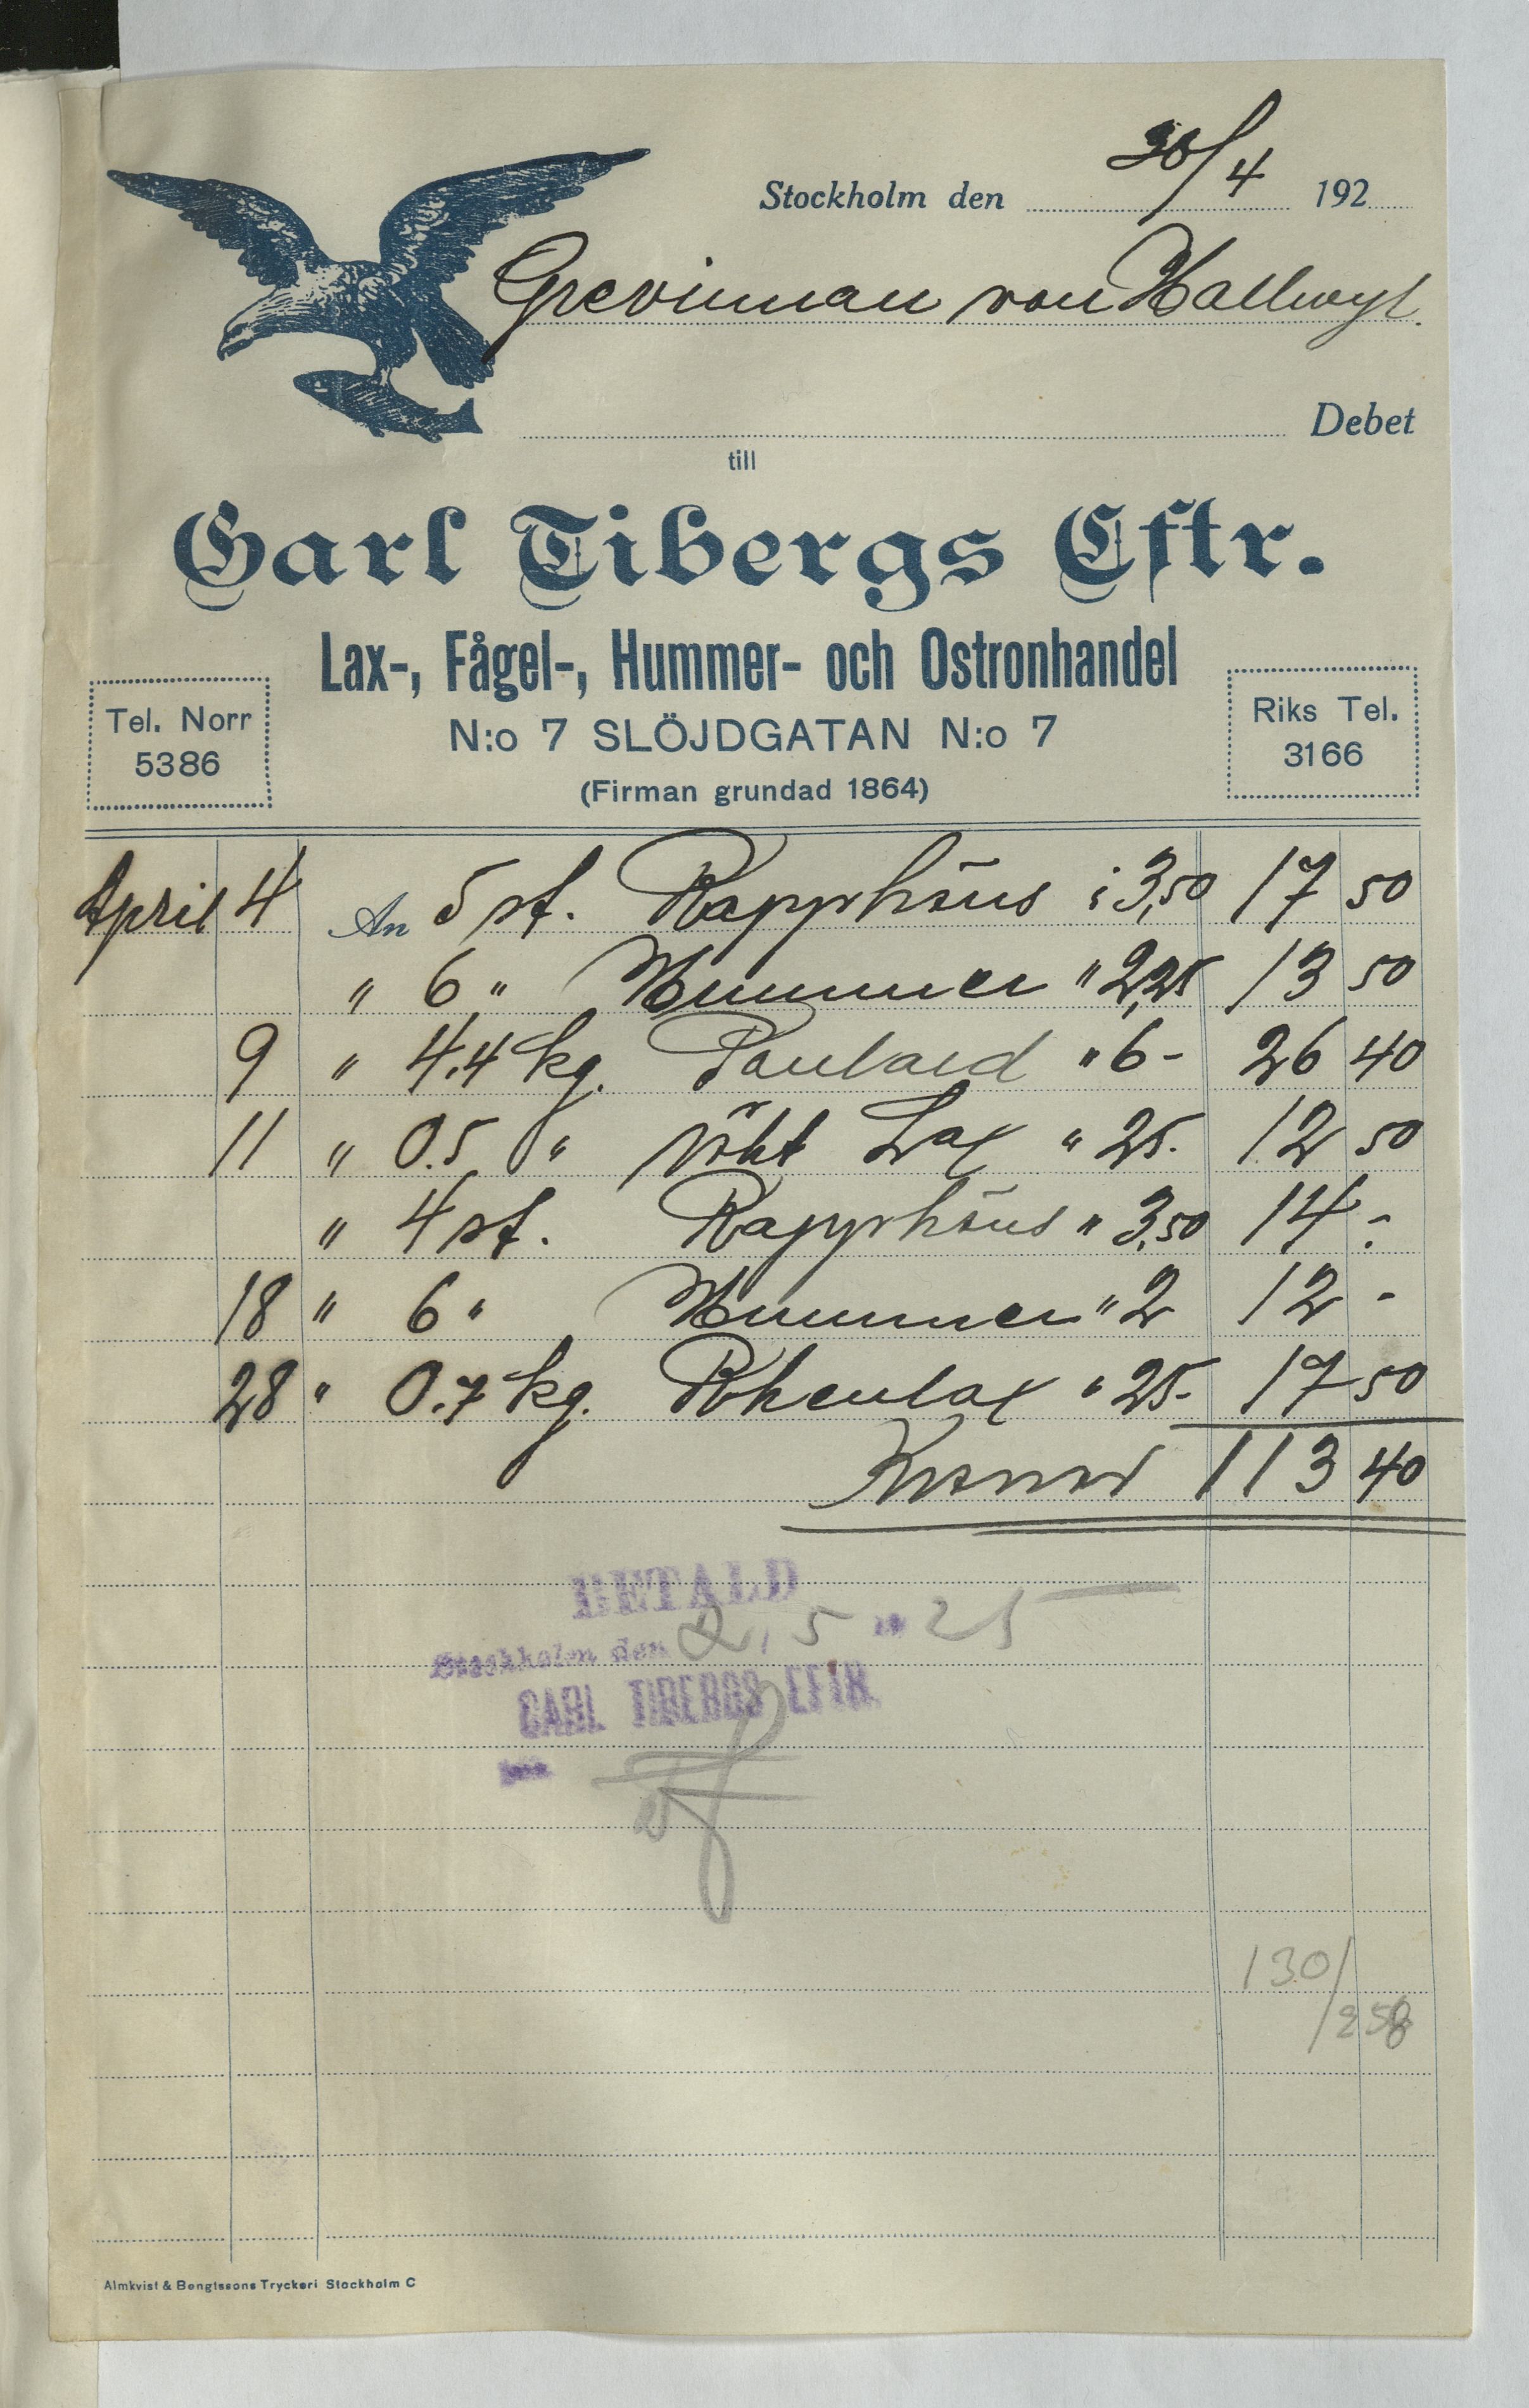 Stockholm den 30/4 192
Grevinnan von Hallwyl.
Debet
till
Carl Tibergs Eftr.
Lax-, Fågel-, Hummer- och Ostronhandel
Tel. Norr
5386
N:o 7 SLÖJDGATAN N:o 7
(Firman grundad 1864)
Riks Tel.
3166
April 4 An 5 st. Rapphöns i 3,50 17 50
" 6 " Hummer " 2,25 13 50
9 " 4.4 kg. Poulard " 6- 26 40
11 " 0.5 " rökt Lax " 25. 12 50
" 4 st. Rapphöns " 3,50 14 -
18 " 6 " Hummer " 2 12 -
28 " 0.7 kg. Rhenlax " 25- 17 50
Kronor 113 40
BETALD
Stockholm den 2, 5 19 25
CARL TIBERGS EFTR.
130/258
Almkvist & Bengtssons Tryckeri Stockholm C